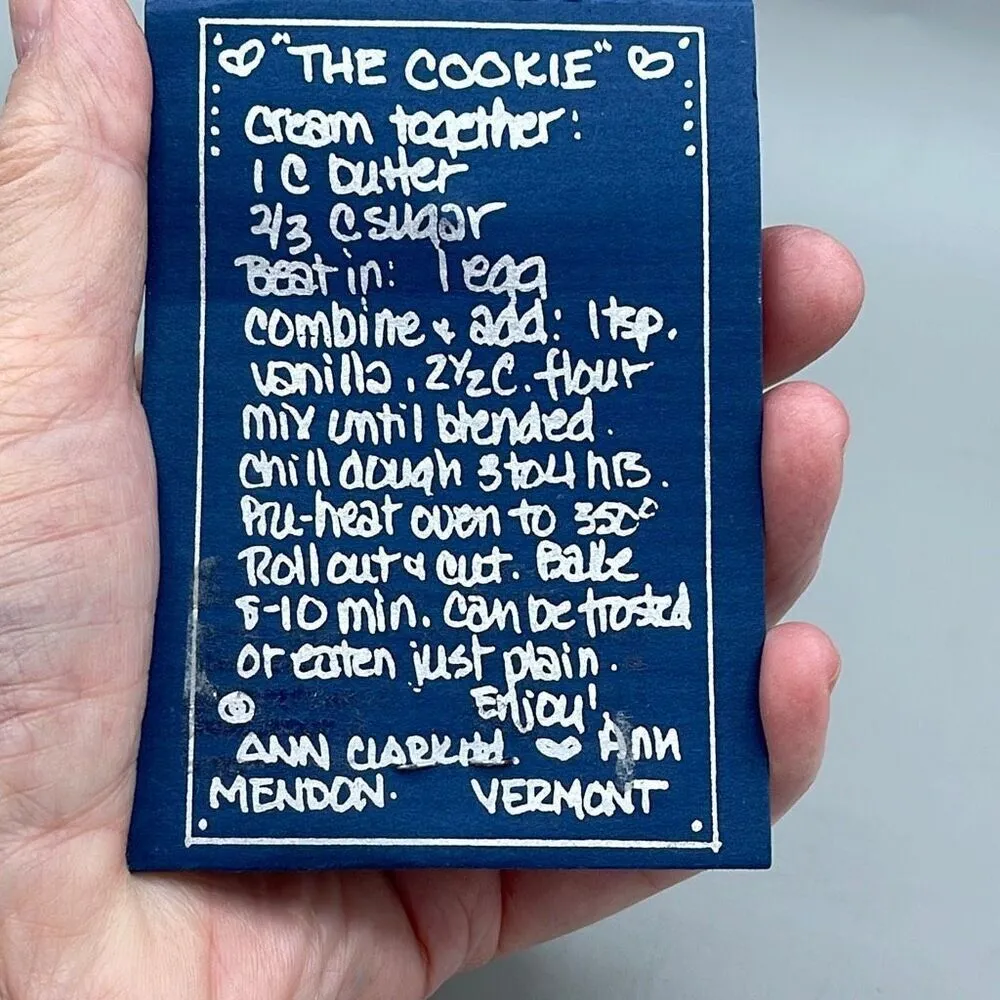 "THE COOKIE"
Cream together:
1 C butter
2/3 C sugar
Beat in: 1 egg
combine & add: 1 tsp.
vanilla. 2 1/2 C. flour
mix until blended.
chill dough 3 to 4 hrs.
Pre-heat oven to 350°
Roll out & cut. Bake
8-10 min. Can be frosted
or eaten just plain.
Enjoy!
© ANN CLARK LTD. Ann
MENDON. VERMONT